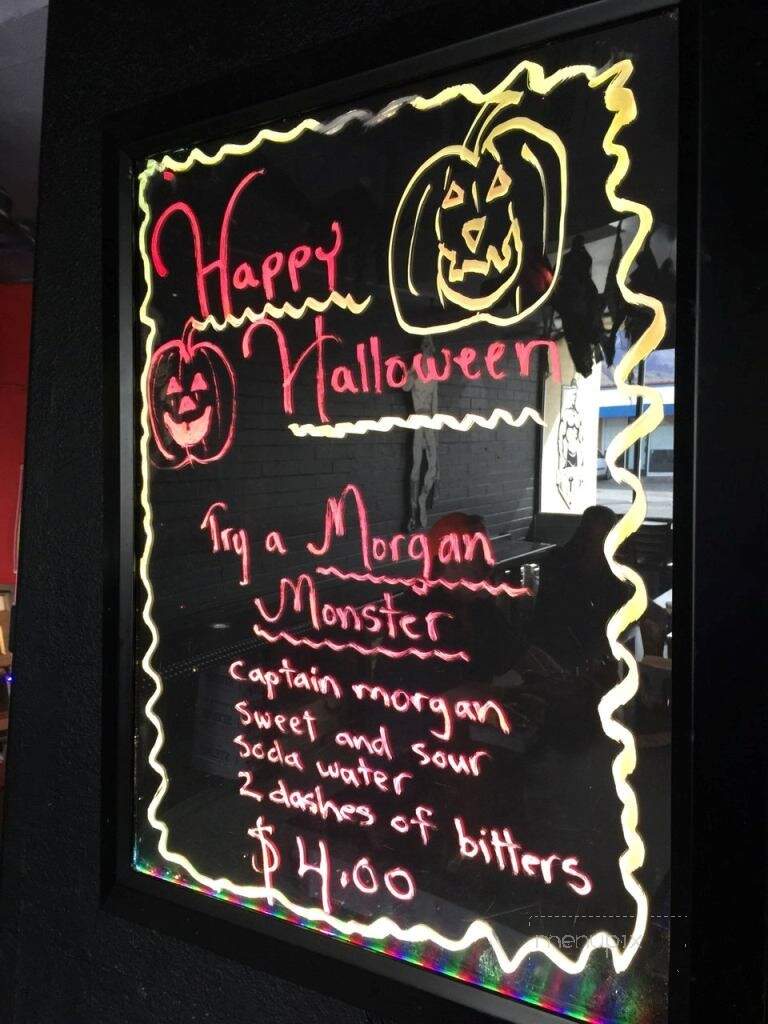 Happy
Halloween
Try a Morgan
Monster
captain morgan
sweet and sour
soda water
2 dashes of bitters
$4.00
menupix